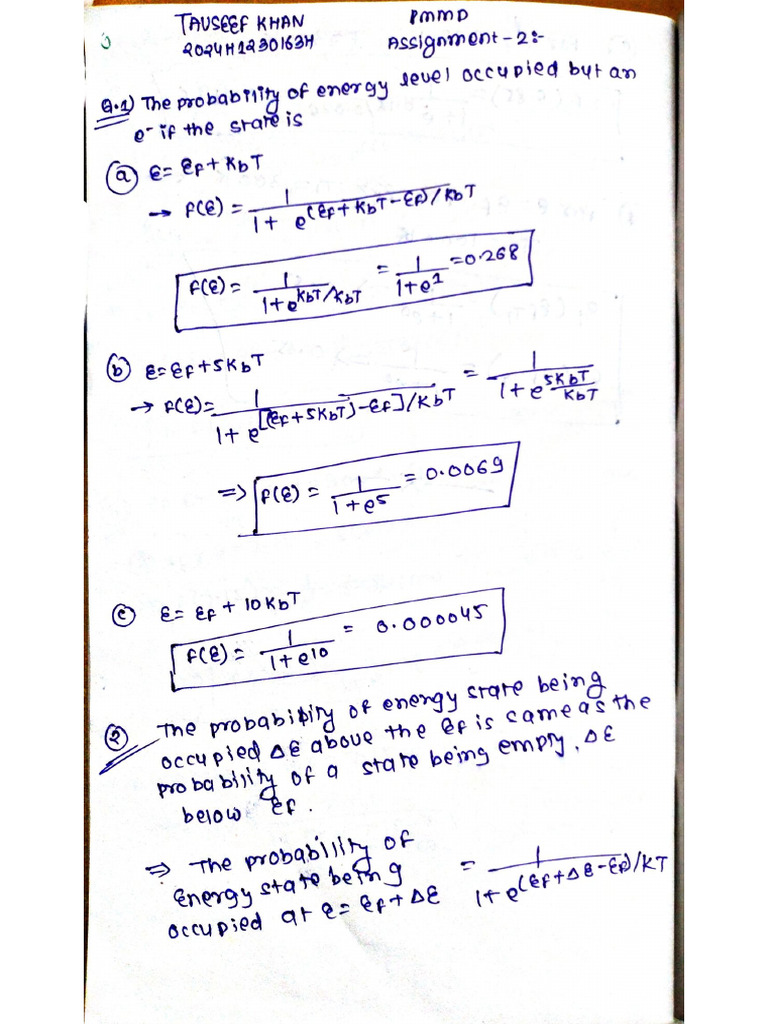 TAUSEEF KHAN PMMD
2024H1230163H Assignment-2:-
Q.1) The probability of energy level occupied but an
e⁻ if the state is
(a) ε = εf + KbT
→ f(ε) = 1 / 1 + e^(εf + KbT - εf)/KbT
f(ε) = 1 / 1 + e^KbT/KbT = 1 / 1 + e^1 = 0.268
(b) ε = εf + 5KbT
→ f(ε) = 1 / 1 + e^[(εf + 5KbT) - εf]/KbT = 1 / 1 + e^5KbT/KbT
=> f(ε) = 1 / 1 + e^5 = 0.0069
(c) ε = εf + 10KbT
f(ε) = 1 / 1 + e^10 = 0.000045
(2) The probability of energy state being
occupied Δε above the εf is came as the
probability of a state being empty, Δε
below εf.
=> The probability of
energy state being
occupied at ε = εf + Δε = 1 / 1 + e^(εf + Δε - εf)/KT